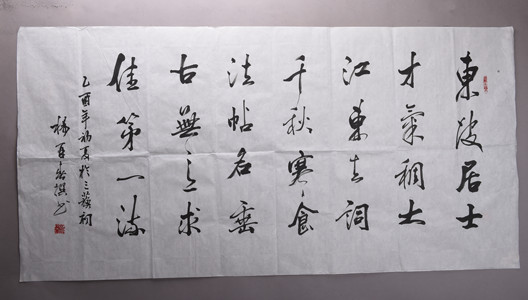 東坡居士
才氣稠大
江東去詞
千秋寒食
法帖名垂
古無求
佳第一流
乙酉年初夏於三蘇祠
楊撰書